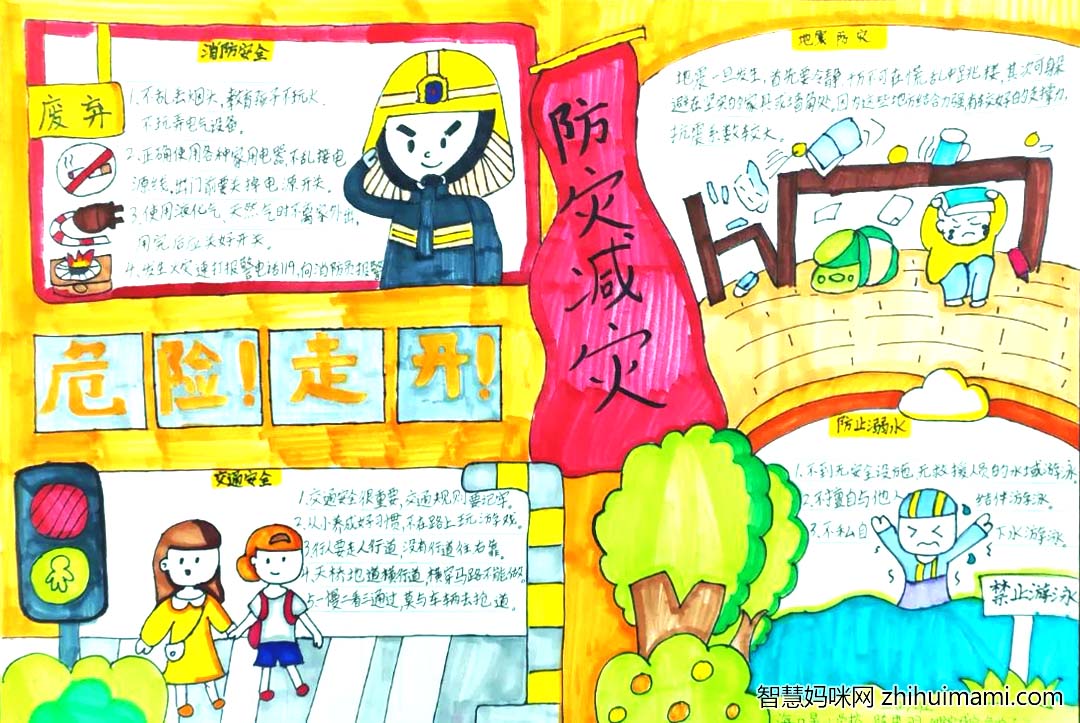 消防安全
废弃
1.不乱丢烟头,教育孩子不玩火.
不玩弄电气设备.
2.正确使用各种家用电器,不乱接电
源线,出门前要关掉电源开关.
3.使用液化气、天然气时不离家外出,
用完后应关好开关.
4.发生火灾速打报警电话119,向消防员报警
危险!走开!
交通安全
1.交通安全很重要,交通规则要记牢。
2.从小养成好习惯,不在路上玩游戏。
3.行人要走人行道,没有行道往右靠。
4.天桥地道横行道,横穿马路不能做。
5.一慢二看三通过,莫与车辆去抢道。
防灾减灾
地震防灾
地震一旦发生,首先要冷静,切不可在慌乱中跳楼,其次可躲
避在坚实的家具或墙角处,因为这些地方结合力强有较好的支撑力,
抗震系数较大。
防止溺水
1.不到无安全设施,无救援人员的水域游泳
2.不擅自与他人结伴游泳。
3.不私自下水游泳。
禁止游泳
智慧妈咪网 zhihuimami.com